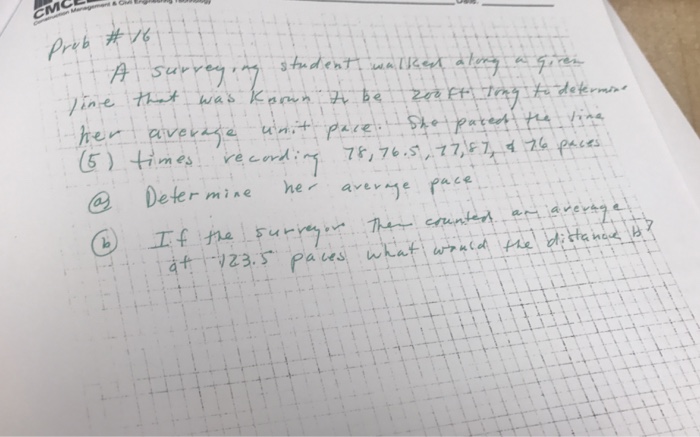 CMCE
Construction Management & Civil Engineering Technology
Prob # 16
A surveying student walked along a given
line that was known to be 200 ft long to determine
her average unit pace. She paced the line
(5) times recording 78, 76.5, 77, 87, & 76 paces
(a) Determine her average pace
(b) If the surveyor then counted an average
of 123.5 paces what would the distance be?